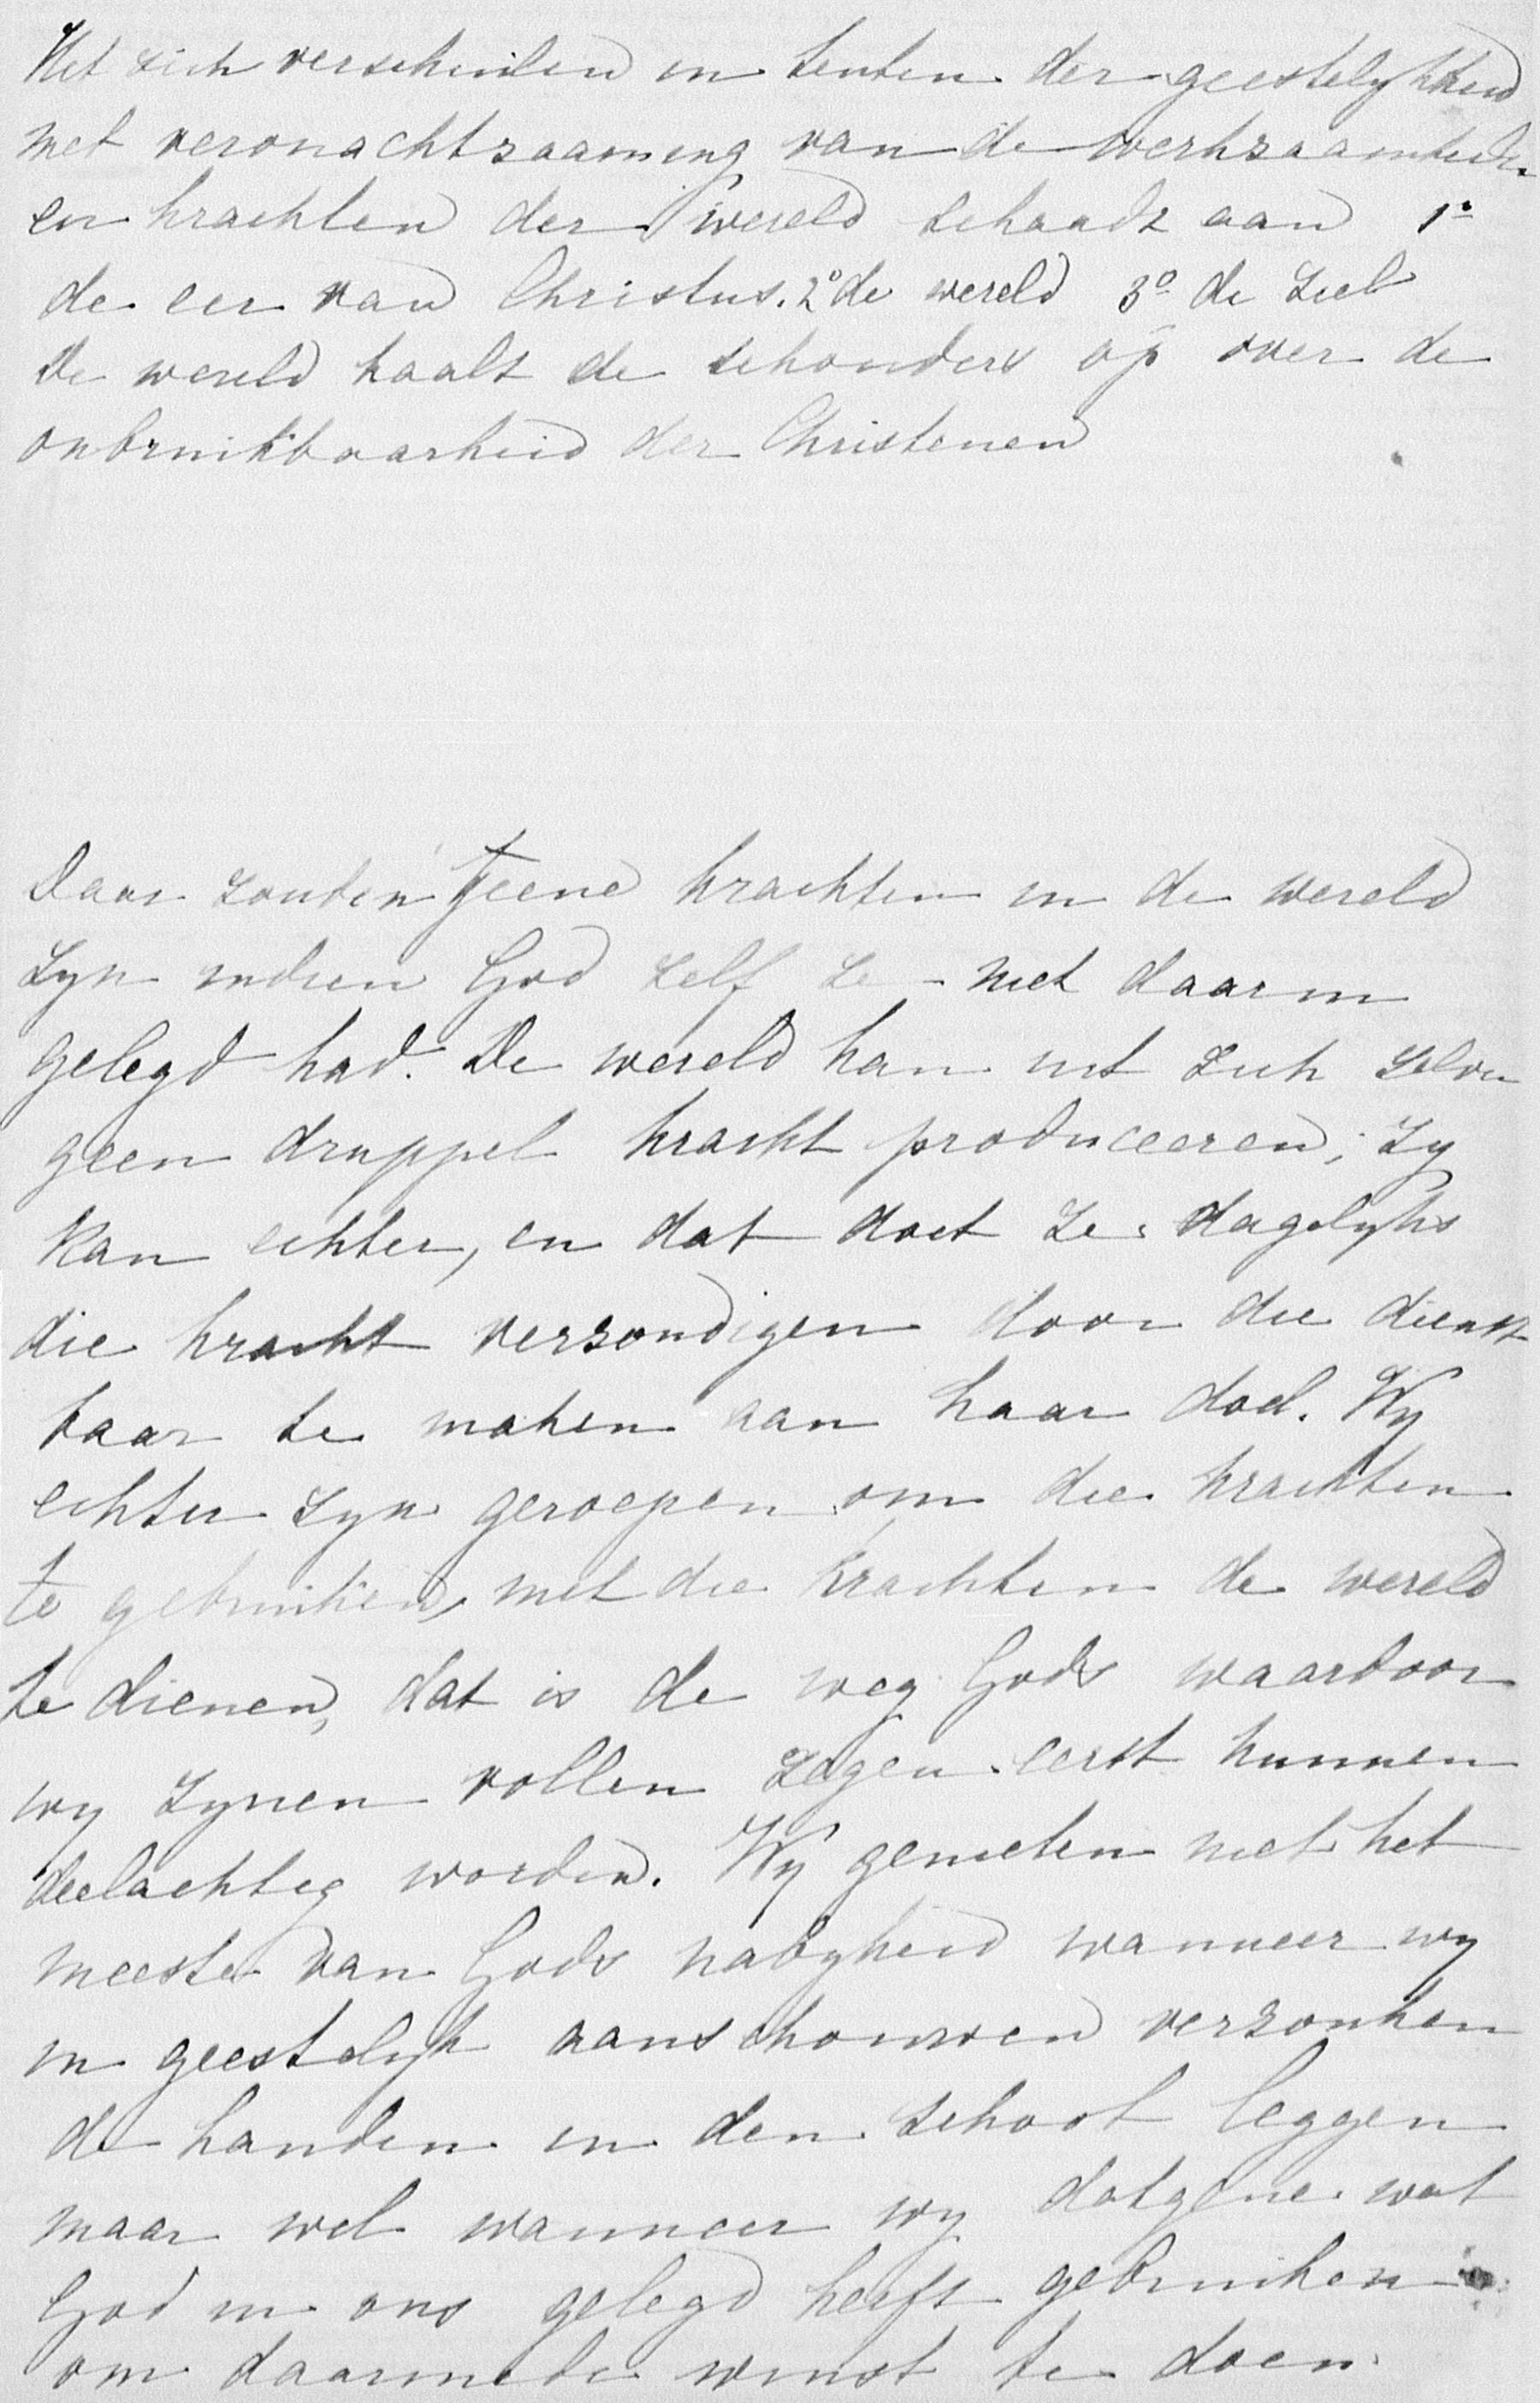 Het zich verschuilen in tenten der geestelykheid
met veronachtzaaming van de werkzaamheden
en krachten der wereld schaadt aan 1o
de eer van Christus. 2o de wereld 3o de ziel
De wereld haalt de schouders op over de
onbruikbaarheid der Christenen
Daar zouden geene krachten in de wereld
zyn indien God zelf ze niet daarin
gelegd had. De wereld kan uit zich zelve
geen druppel kracht produceeren; zy
kan echter, en dat doet ze dagelyks
die kracht verzondigen door die dienst
baar te maken aan haar doel. Wy
echter zyn geroepen om die krachten
te gebruiken, met die krachten de wereld
te dienen, dat is de weg Gods waardoor
wy Zynen vollen zegen eerst kunnen
deelachtig worden. Wy genieten niet het
meeste van Gods nabyheid wanneer wy
in geestelyk aanschouwen verzonken
de handen in den schoot leggen
maar wel wanneer wy datgene wat
God in ons gelegd heeft gebruiken
om daarmede winst te doen.